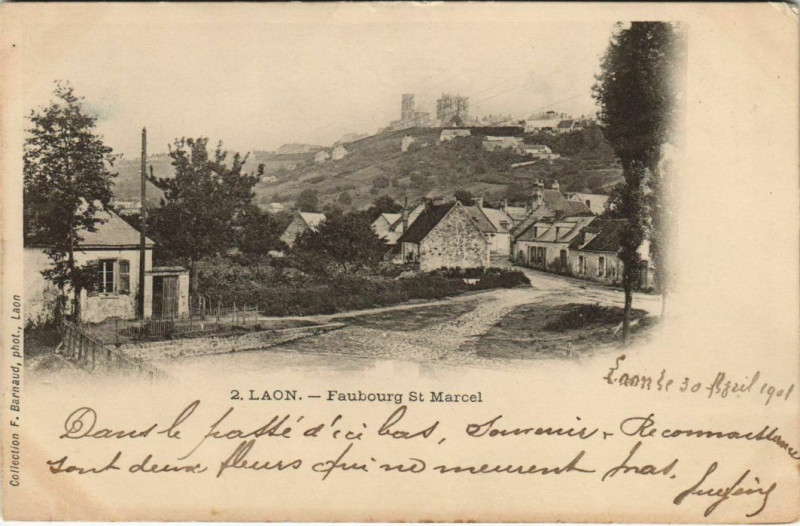 Collection F. Barnaud, phot., Laon
2. LAON. — Faubourg St Marcel
Laon le 30 Avril 1901
Dans le passé d'ici bas, Souvenir, Reconnaissance
sont deux fleurs qui ne meurent pas.